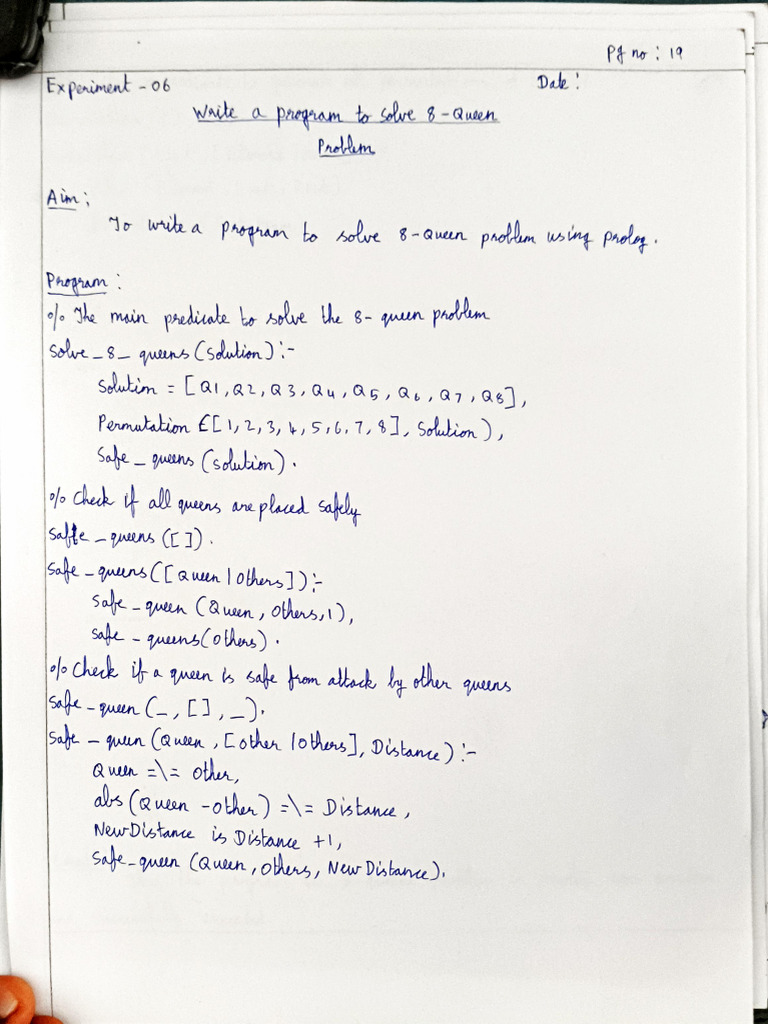 Pg no : 19
Experiment - 06 Date :
Write a program to solve 8-Queen
Problem
Aim :
To write a program to solve 8-Queen problem using prolog.
Program :
% The main predicate to solve the 8-queen problem
solve_8_queens(Solution) :-
Solution = [Q1, Q2, Q3, Q4, Q5, Q6, Q7, Q8],
Permutation ([1, 2, 3, 4, 5, 6, 7, 8], Solution),
Safe_queens (solution).
% Check if all queens are placed safely
Safe_queens ([]).
Safe_queens([Queen | Others]) :-
Safe_queen (Queen, Others, 1),
Safe_queens(Others).
% Check if a queen is safe from attack by other queens
Safe_queen (_, [], _).
Safe_queen (Queen, [Other | Others], Distance) :-
Queen =\= Other,
abs (Queen - Other) =\= Distance,
NewDistance is Distance +1,
Safe_queen (Queen, Others, NewDistance).